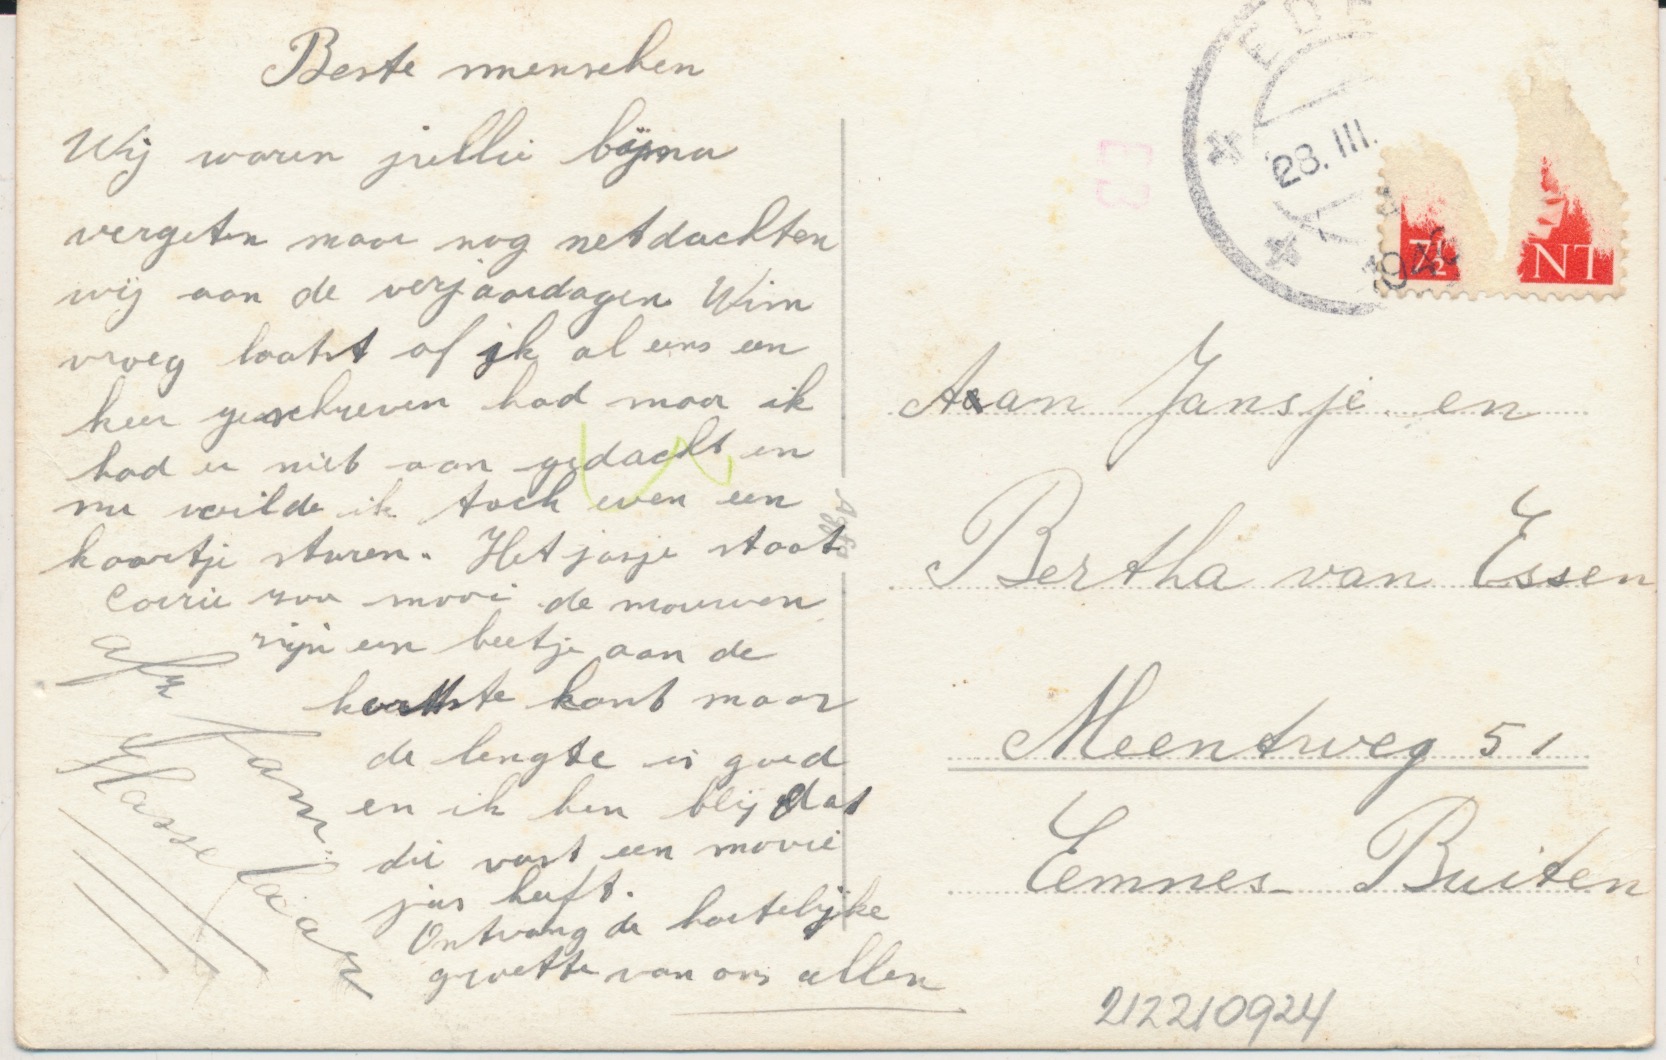 Beste menschen
Wij waren jullie bijna
vergeten maar nog net dachten
wij aan de verjaardagen Wim
vroeg laatst of ik al eens een
keer geschreven had maar ik
had er niet aan gedacht en
nu wilde ik toch even een
kaartje sturen. Het jasje staat
Corrie zoo mooi de mouwen
zijn een beetje aan de
kortste kant maar
de lengte is goed
en ik ben blij dat
die vast een mooie
jas heeft.
Ontvang de hartelijke
groette van ons allen
afz
Fam.
Hasselaar
EDE
28.III.
194
7½
NT
Agfa
Aan Jansje en
Bertha van Essen
Meentweg 51
Eemnes - Buiten
212210924